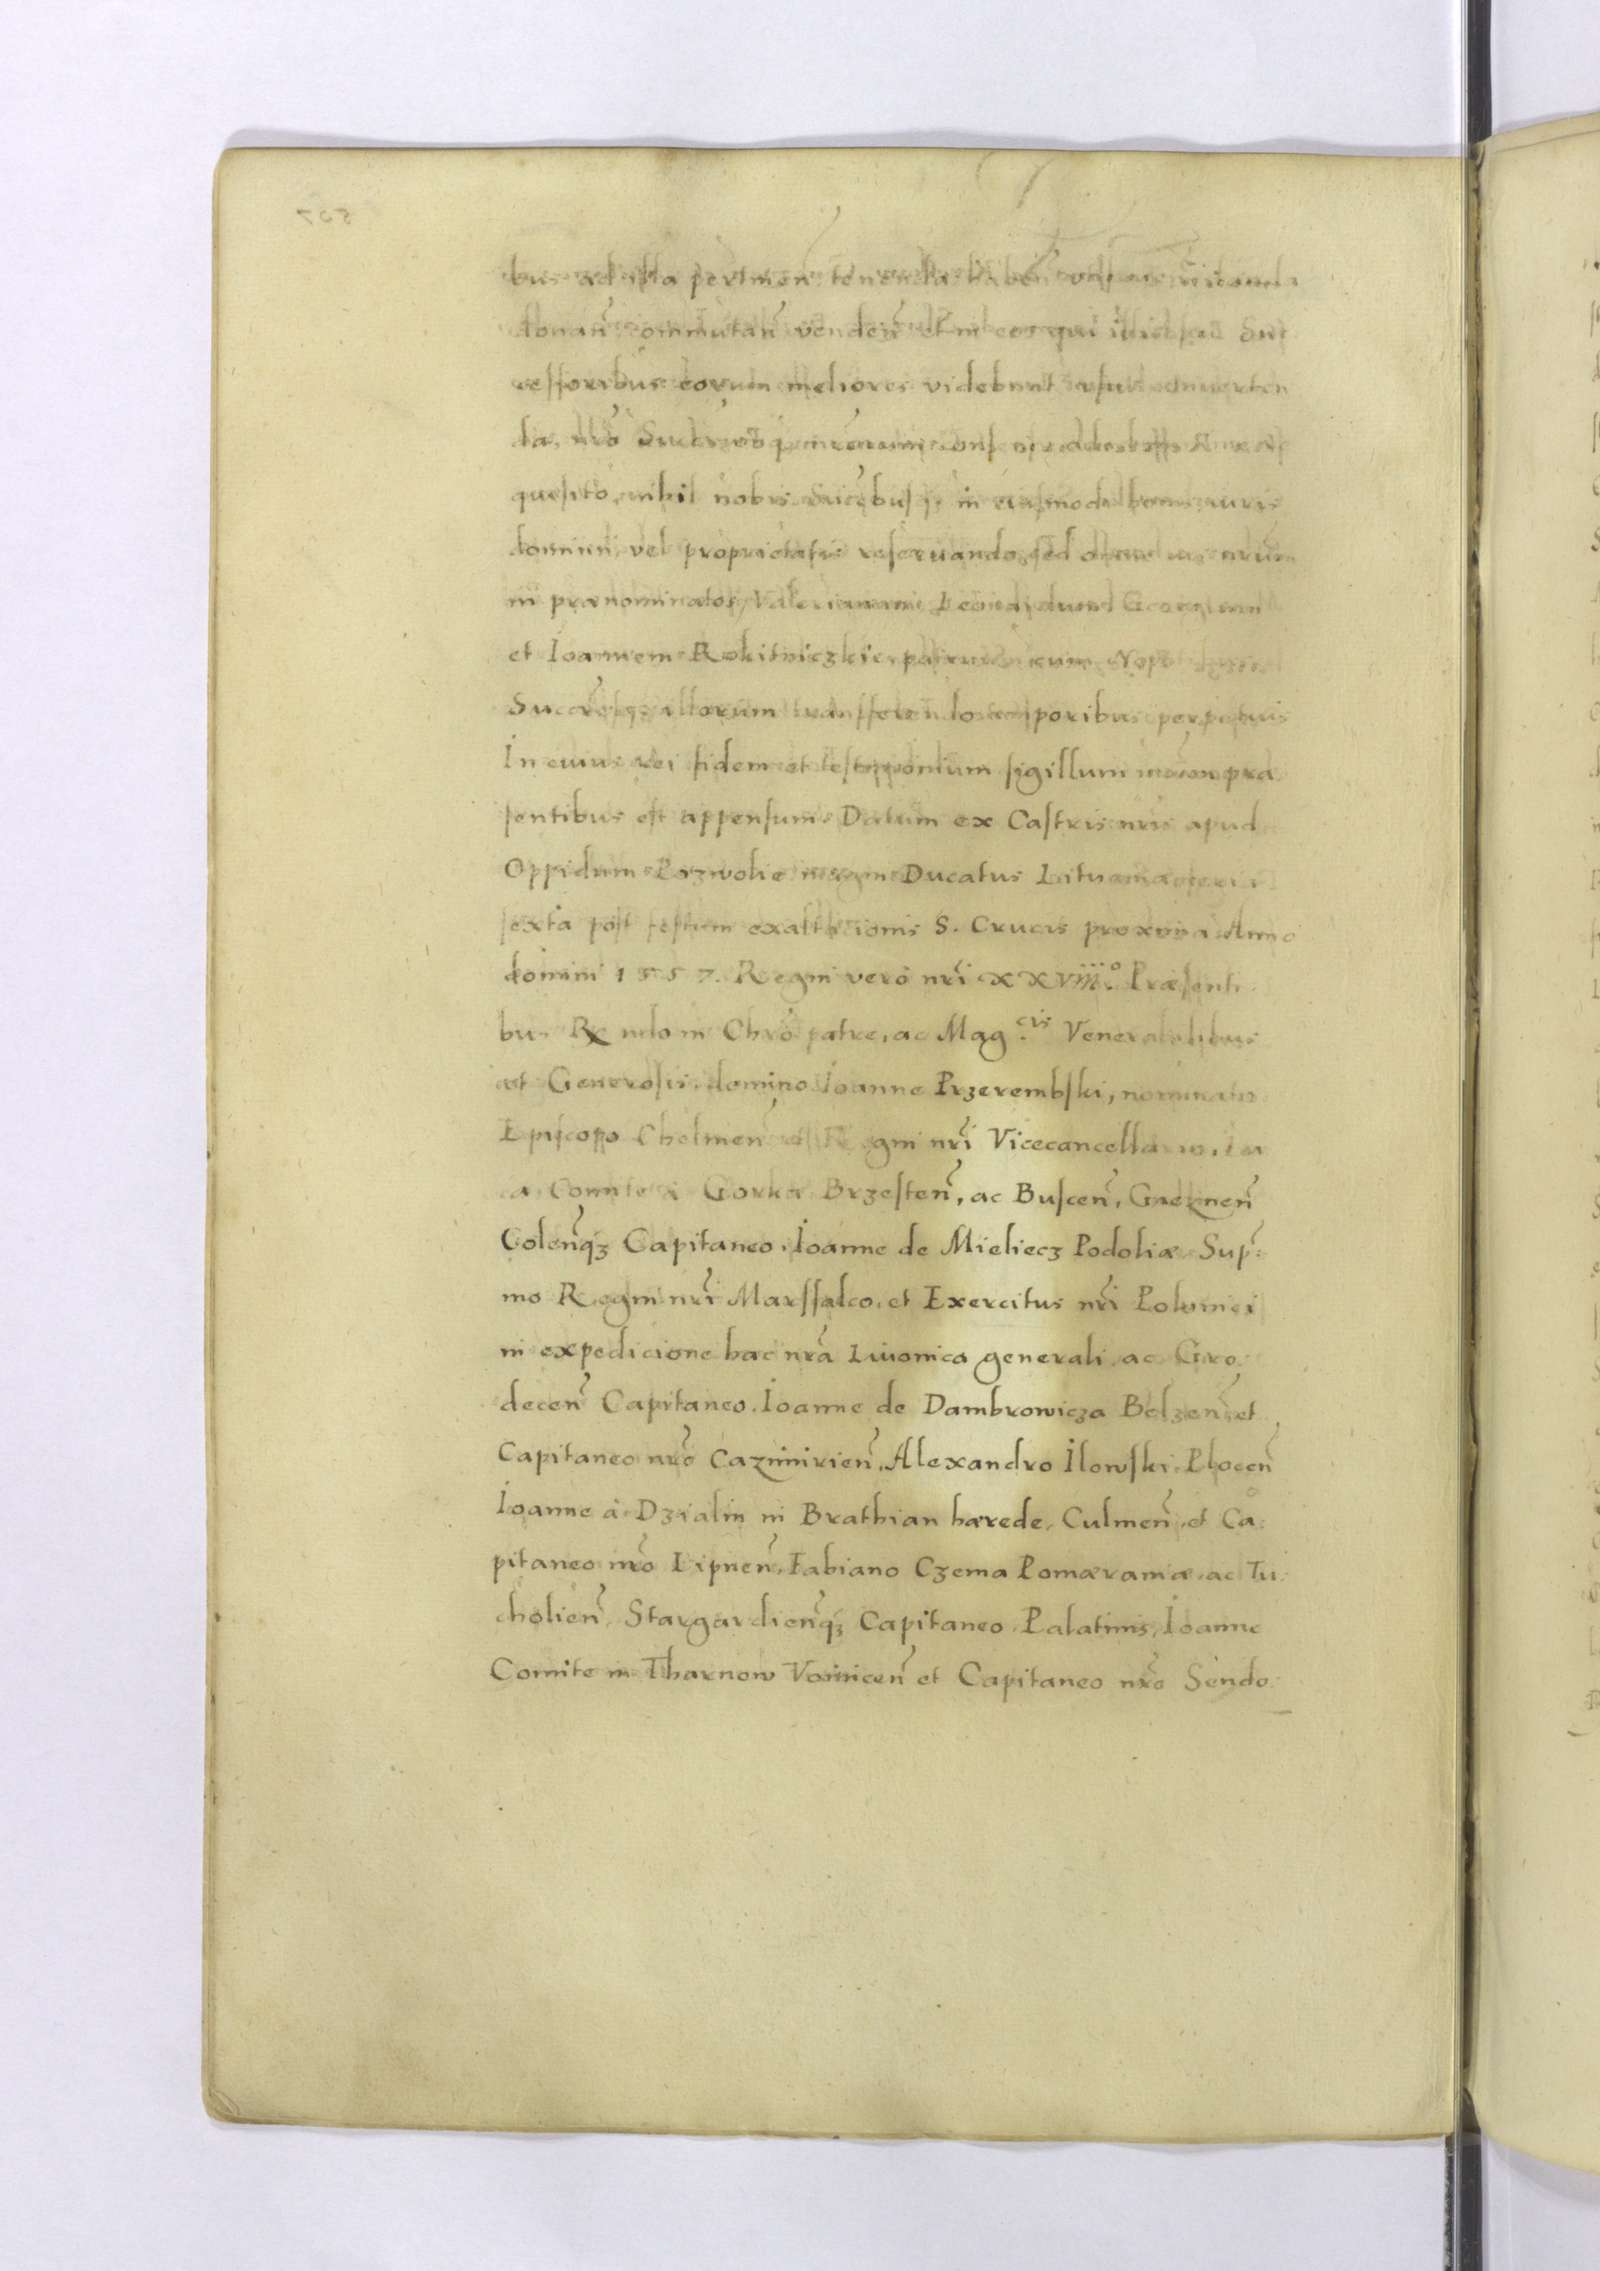 bus ad illa pertinen̄ tenenda haben̄
donan̄ commutan̄ venden̄ et in eos qui
cessoribus eorum meliores videbunt
da, nr̄o
quesito, nihil nobis in eiusmodi bonis iuris
dominii vel proprietatis reseruando, sed omne ius nr̄um
in prænominatos, Valerianum Leonardum Georgium
et Ioannem Rokitniczkie,
Succr̄esq; illorum transferendo temporibus perpetuis
In cuius rei fidem et testimonium sigillum nr̄um præ
sentibus est appensum. Datum ex Castris nr̄is apud
Oppidum Pozwolie magni Ducatus Lituaniæ feria
sexta post festum exaltationis S. Crucis proxima Anno
domini 1557. Regni vero nr̄i XXViii.° Præsenti
bus Rx̄ndo in Chr̄o patre, ac Mag.cis Venerabilibus
et Generosis, domino Ioanne Przerembski, nominato
Episcopo Chelmen̄ et Regni nr̄i Vicecancellario, Lu
ca Comite à Gorka Brzesten̄, ac Buscen̄, Gneznen̄
Colen̄q; Capitaneo, Ioanne de Mieliecz Podoliæ Sup̄:
mo Regni nr̄i Marssalco, et Exercitus nr̄i Polonici
in expedicione hac nr̄a Liuonica generali, ac Gro:
decen̄ Capitaneo, Ioanne de Dambrowicza Belzen̄ et
Capitaneo nr̄o Cazimirien̄, Alexandro Ilowski Plocen̄
Ioanne à Dzialin in Brathian hærede, Culmen̄, et Ca:
pitaneo nr̄o Lipnen̄, Fabiano Czema Pomæraniæ, ac Tu:
cholien̄, Stargardien̄q; Capitaneo, Palatinis, Ioanne
Comite in Tharnow Voinicen̄ et Capitaneo nr̄o Sendo: